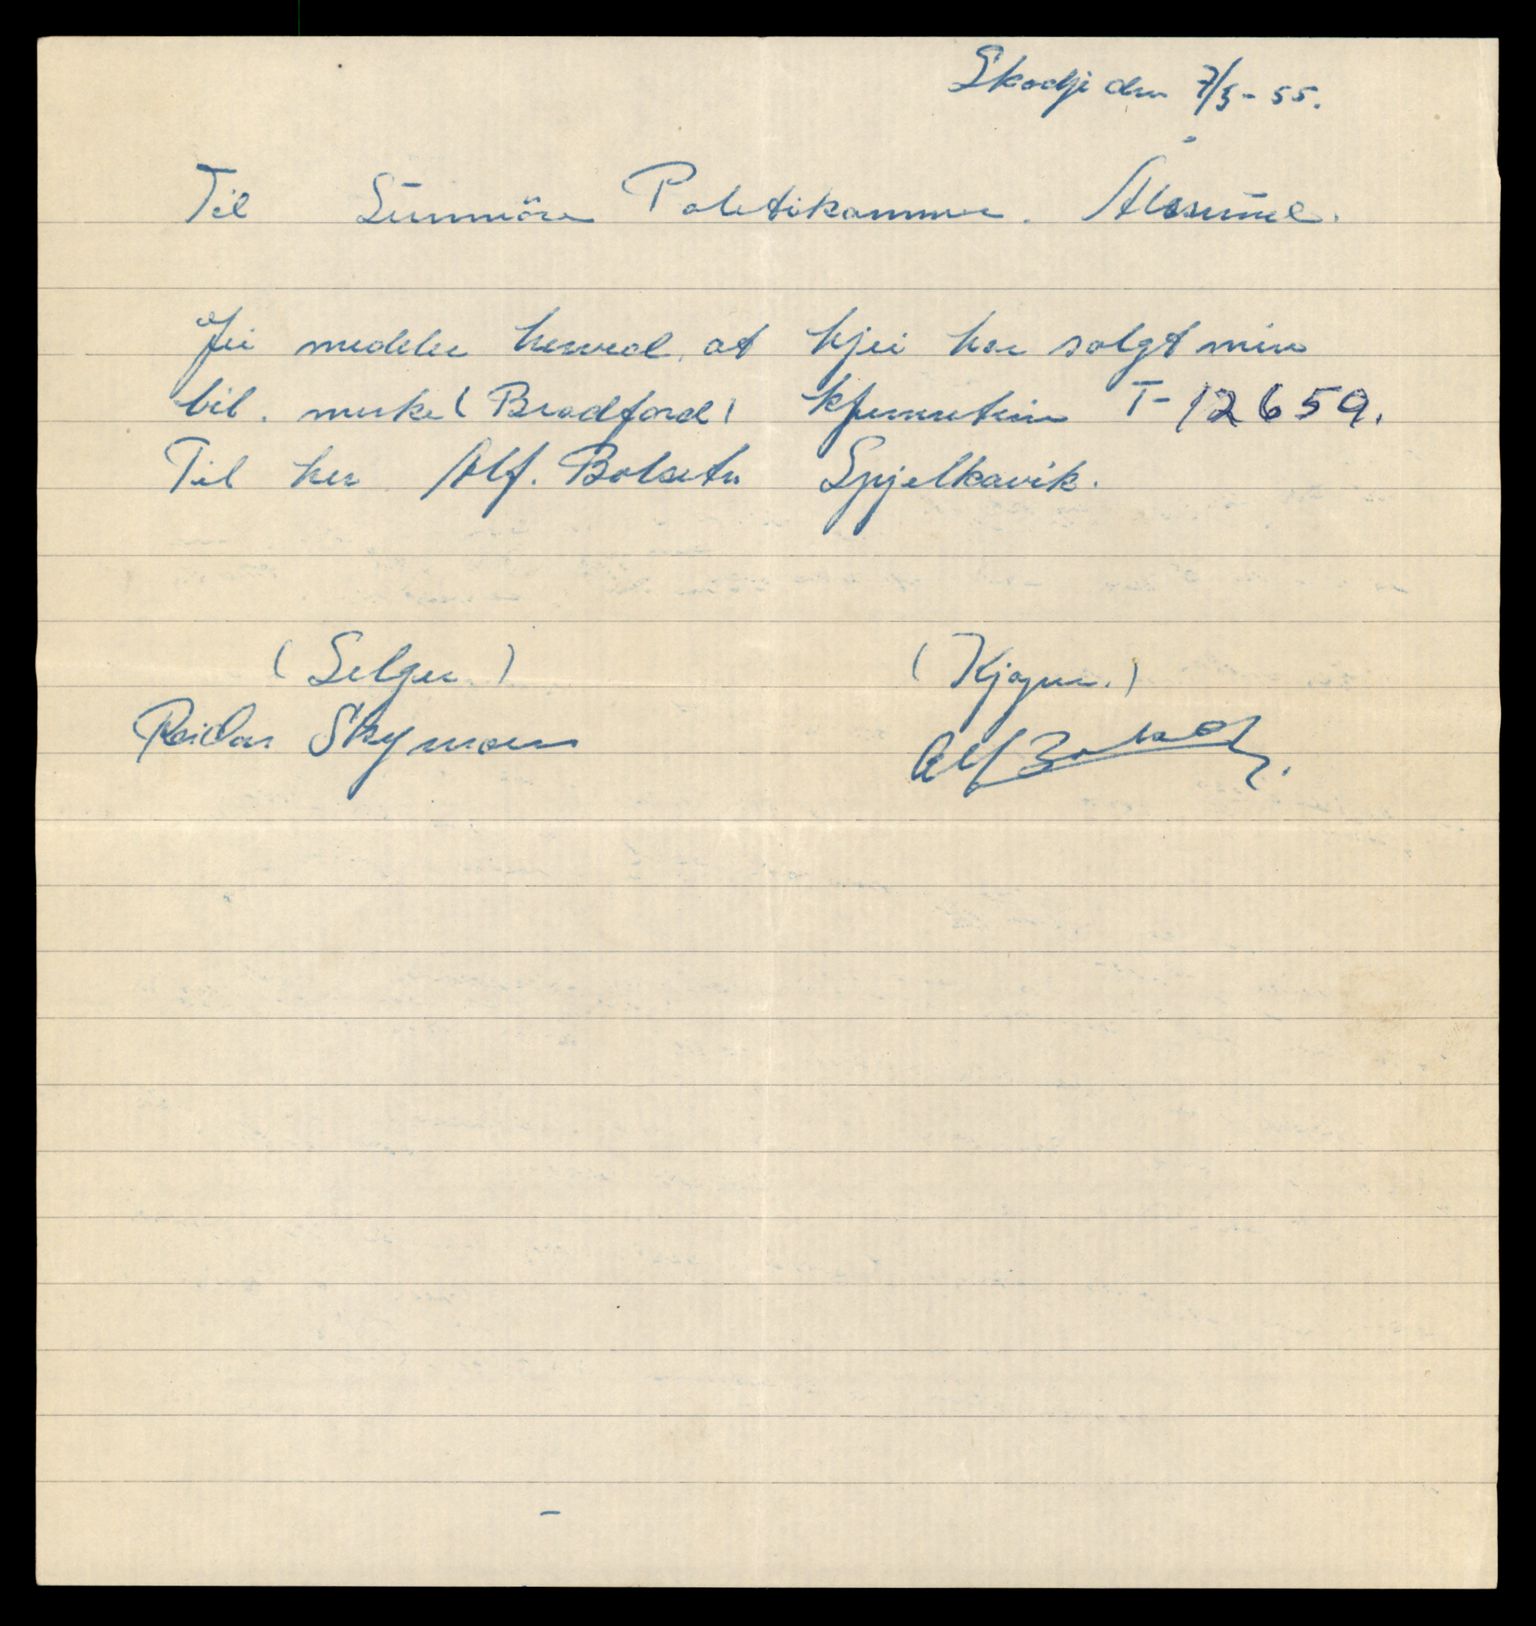 Skodje den 7/5-55.
Til Sunnmöre Politikammer. Ålesund.
Jei medeler herved at hjei har salgt min
bil. merke (Bradford) kjennetein T-12659.
Til her Alf. Bolsetn Spjelkavik.
(Selger.) (Kjøper.)
Reidar Skymoen Alf Bolset.